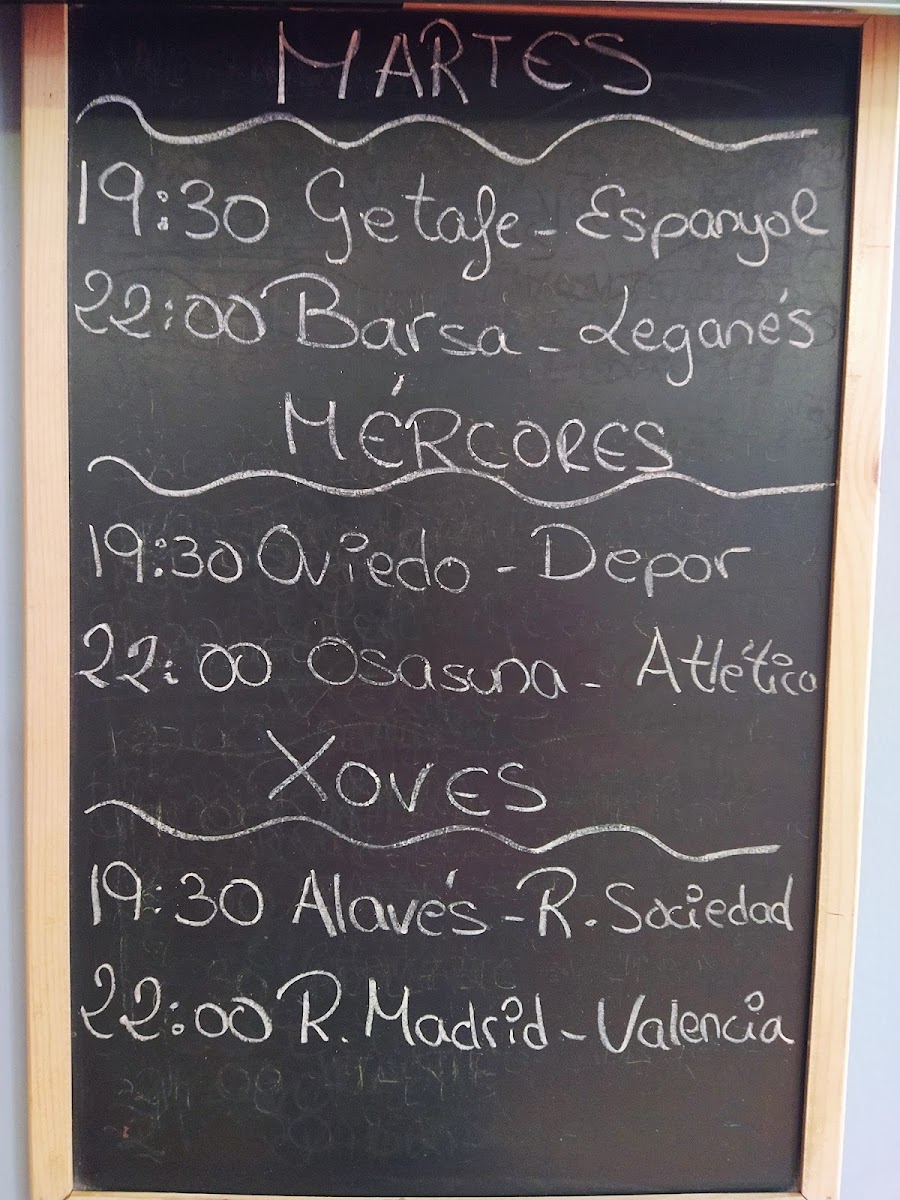 MARTES
19:30 Getafe - Espanyol
22:00 Barsa - Leganés
MÉRCORES
19:30 Oviedo - Depor
22:00 Osasuna - Atlético
XOVES
19:30 Alavés - R. Sociedad
22:00 R. Madrid - Valencia